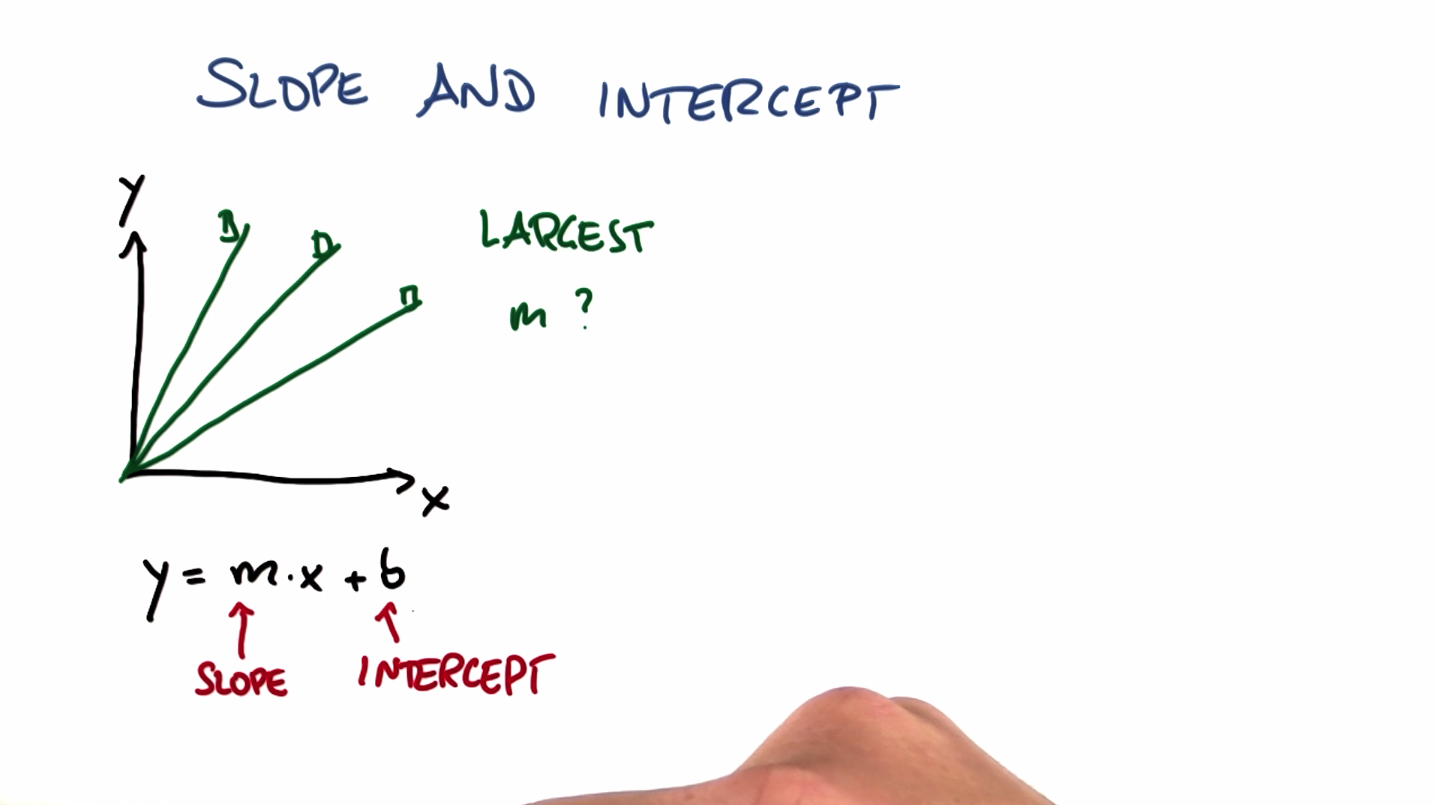 SLOPE AND INTERCEPT
Y
LARGEST
m ?
X
y = m·x + b
SLOPE
INTERCEPT